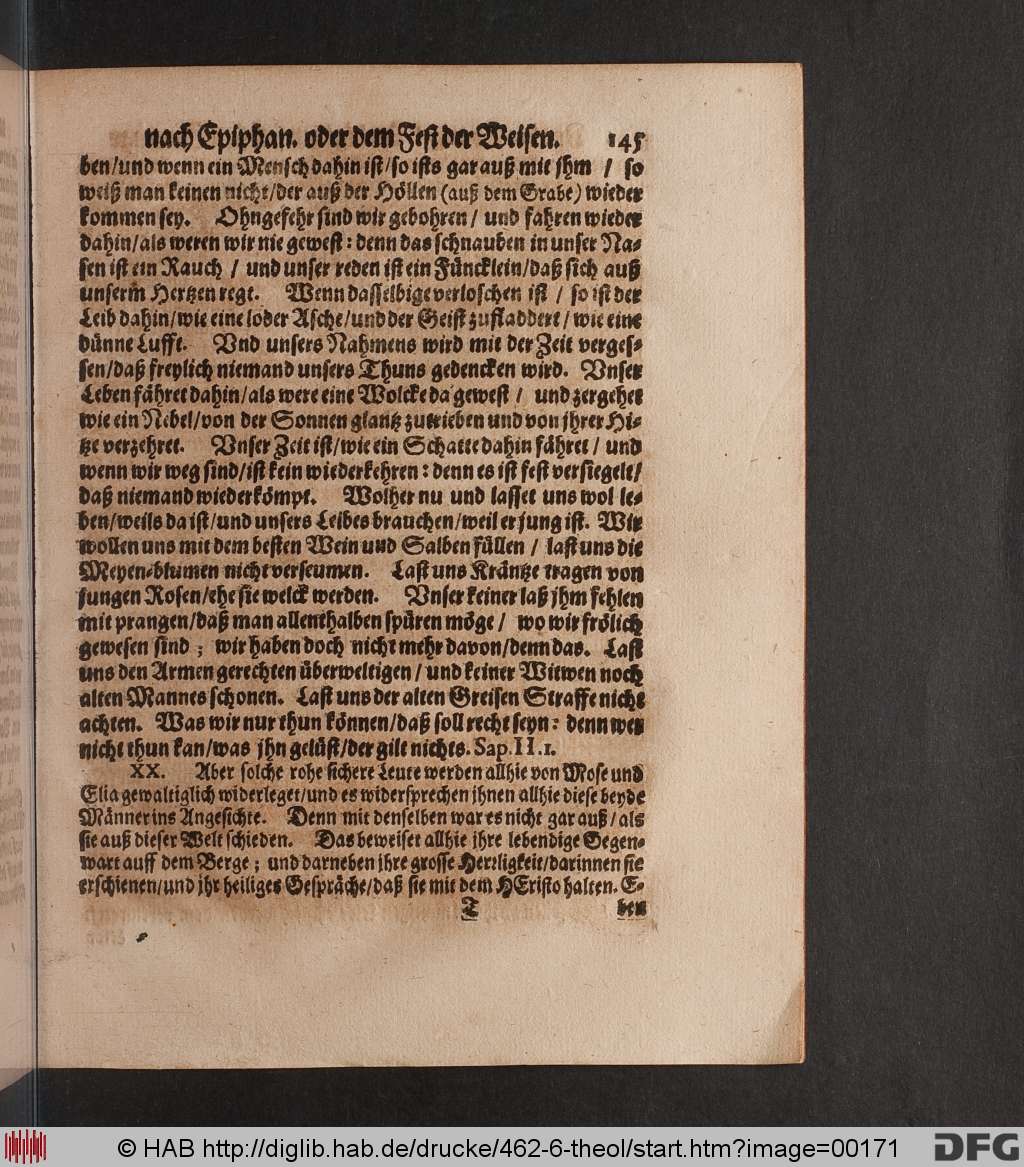 nach Epiphan. oder dem Fest der Weisen. 145
ben/und wenn ein Mensch dahin ist/so ists gar auß mit jhm / so
weiß man keinen nicht/der auß der Höllen (auß dem Grabe) wieder
kommen sey. Ohngefehr sind wir gebohren / und fahren wieder
dahin/als weren wir nie gewest: denn das schnauben in unser Na-
sen ist ein Rauch / und unser reden ist ein Füncklein/daß sich auß
unserm Hertzen regt. Wenn dasselbige verloschen ist / so ist der
Leib dahin/wie eine loder Asche/und der Geist zufladdert/wie eine
dünne Lufft. Vnd unsers Nahmens wird mit der Zeit verges-
sen/daß freylich niemand unsers Thuns gedencken wird. Vnser
Leben fähret dahin/als were eine Wolcke da gewest / und zergehet
wie ein Nebel/von der Sonnen glantz zutrieben und von jhrer Hi-
tze verzehret. Vnser Zeit ist/wie ein Schatte dahin fähret / und
wenn wir weg sind/ist kein wiederkehren: denn es ist fest versiegelt/
daß niemand wiederkömpt. Wolher nu und lasset uns wol le-
ben/weils da ist/und unsers Leibes brauchen/weil er jung ist. Wir
wollen uns mit dem besten Wein und Salben füllen / last uns die
Meyen-blumen nicht verseumen. Last uns Kräntze tragen von
jungen Rosen/ehe sie welck werden. Vnser keiner laß jhm fehlen
mit prangen/daß man allenthalben spüren möge / wo wir frölich
gewesen sind ; wir haben doch nicht mehr davon/denn das. Last
uns den Armen gerechten überweltigen / und keiner Witwen noch
alten Mannes schonen. Last uns der alten Greisen Straffe nicht
achten. Was wir nur thun können/daß soll recht seyn: denn wer
nicht thun kan/was jhn gelüst/der gilt nichts. Sap. II. 1.
XX. Aber solche rohe sichere Leute werden allhie von Mose und
Elia gewaltiglich widerleget/und es widersprechen ihnen allhie diese beyde
Männer ins Angesichte. Denn mit denselben war es nicht gar auß/als
sie auß dieser Welt schieden. Das beweiset allhie jhre lebendige Gegen-
wart auff dem Berge ; und darneben jhre grosse Herrligkeit/darinnen sie
erschienen/und jhr heiliges Gespräche/daß sie mit dem HEristo halten. E-
T ben
© HAB http://diglib.hab.de/drucke/462-6-theol/start.htm?image=00171
DFG